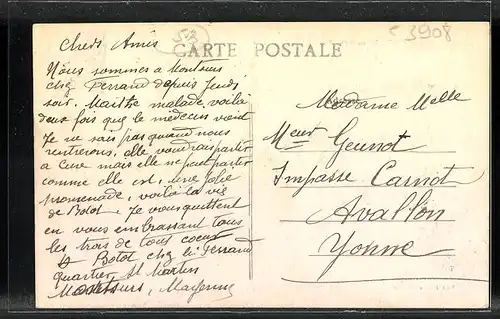 c 3908
CARTE POSTALE
Chers Amis
Nous sommes a Montsurs
chez Ferrand depuis Jeudi
soir. Maithé malade, voila
deux fois que le médecin vient
Je ne sais pas quand nous
rentrerons, elle voudrais partir
a Ceve mais elle ne peut partir
comme elle est, une jolie
promenade, voila la vie
de Botot. Je vous quittent
en vous embrassant tous
les trois de tout coeur
Botot chez Mr Ferrand
Quartier St Martin
Montsurs, Mayenne
Madame Melle
Meur Geunot
Impasse Carnot
Avallon
Yonne